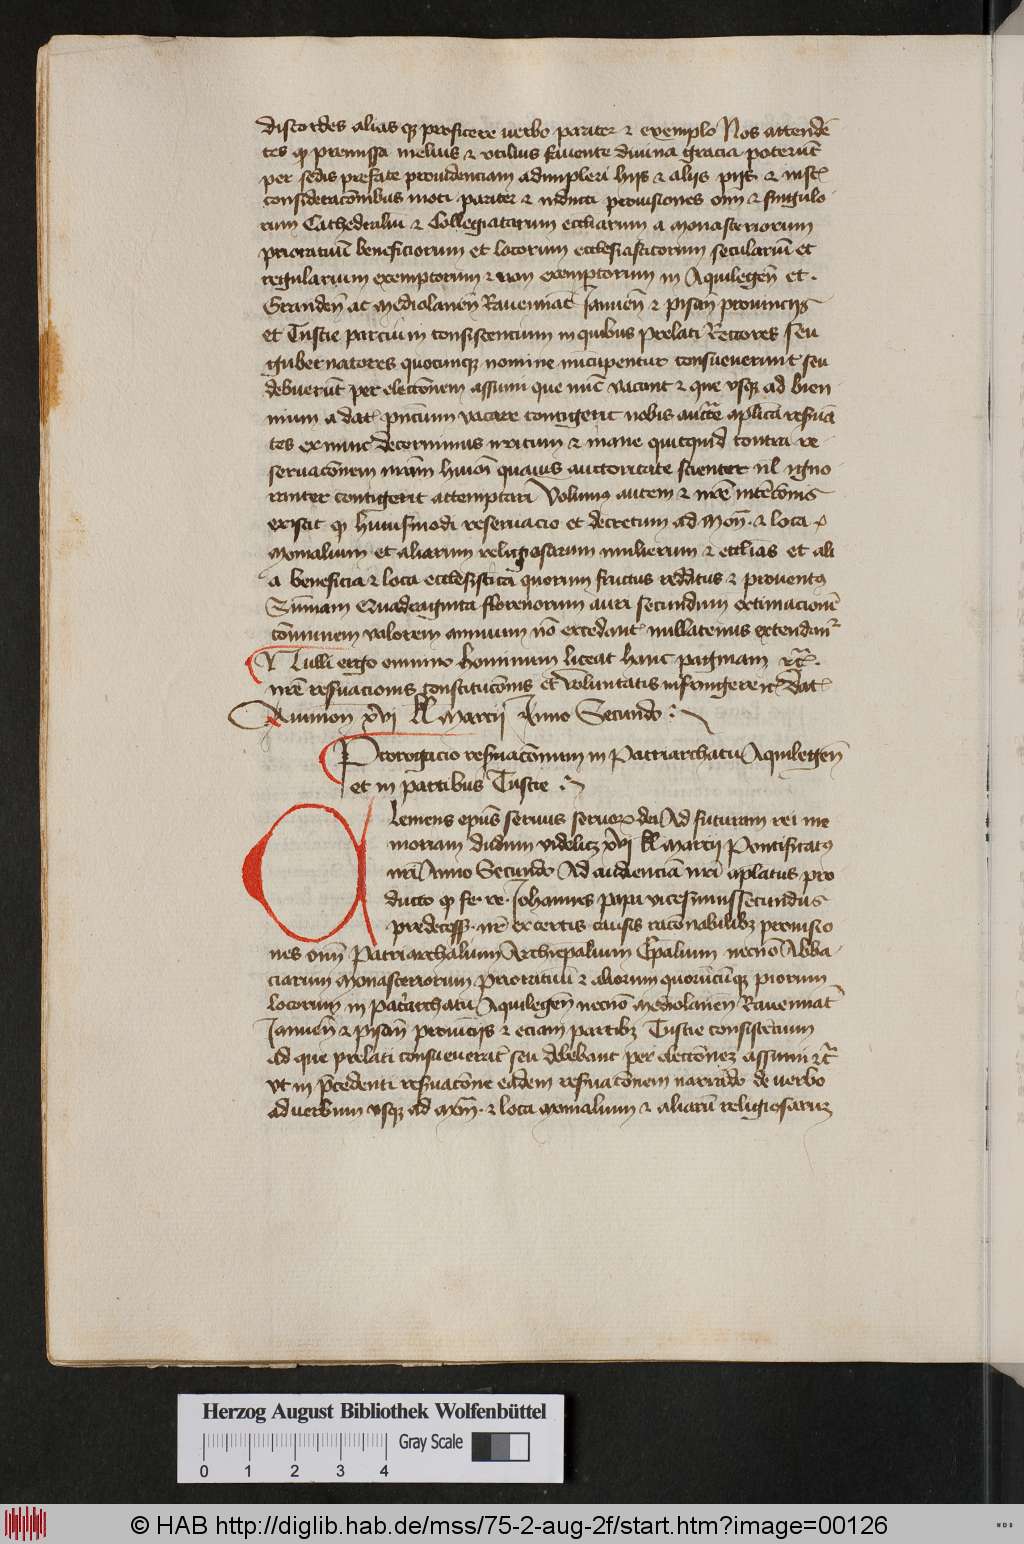 discordes alias qz proficere verbo pariter et exemplo Nos attendē
tes qp premissa melius et vtilius fauente diuina gracia poterūt
per sedis prefate prouidenciam adimpleri hijs et alijs pijs et iust
consideracōnibus moti pariter et inducti prouisiones oīm et singulo
rum Cathedraliū et Collegiatarum eccliarum a monasteriorum
prioratuū beneficiorum et locorum ecclesiasticorum seculariū et
regularium exemptorum et non exemptorum in Aquilegeñ et
Granden̄ ac mediolaneñ Rauennat̄ Januen̄ et pisan̄ prouincijs
et Tuscie parciū in consistencium in quibus prelati Rectores seu
gubernatores quocunqz nomine nūcupentur consueuerunt seu
debuerūt per electōnem assumi que nūc vacant et que vsqz ad bien
nium a dat. pn̄cium vacare contigerit nobis auctē aplica resuā
tes ex nunc decernimus irritum et inane quitquid contra re
seruacōnem nr̄am huiōi quauis auctoritate scienter ul igno
ranter contigerit attemptari Volumus autem et nr̄e intēcōnis
existit qp huiusmodi reseruacio et decretum ad Moñ. et loca
Monialium et aliarum religiosarum mulierum et ecclīas et ali
a beneficia et loca ecclesiastica quorum fructus redditus et prouentus
Sūmam Quadraginta florenorum auri secundum extimacionē
cōmunem valorem annuum nō excedant nullatenus extendant
Nulli ergo omnino hominum liceat hanc paginam
nr̄e resuacionis constitucōnis et voluntatis infringere etc dat
Auinion̄ xvi kl Marcij Anno Secundo
Prorogacio resuacōnum in Patriarchatu Aquilegeñ
et in partibus Tuscie
Clemens ep̄us seruus seruorum dei Ad futuram rei me
moriam dudum videlicz xvi kl Marcij Pontificatus
nr̄i Anno Secundo Ad audienciā nr̄i aplatus pro
ducto qp fe. re. Johannes papa vicesimussecundus
predecess. nr̄ ex certis causis racōnabilibz prouisio
nes oīm Patriarchalium Archiepalium Epalium necnō Abba
ciarum Monasteriorum Prioratuū et aliorum quorūcūqz piorum
locorum in patriarchatu Aquilegeñ necnō mediolaneñ Rauennat
Januen̄ et pisan̄ prouincijs et eciam partibz Tuscie consistēcium
Ad que prelati consueuerāt seu debebant per electōnez assumi etc
vt in p̄cedenti resuacōne eādem resuacōnem narrādo de verbo
ad verbum vsqz ad moñ. et loca monialium et aliarū religiosaruz
Herzog August Bibliothek Wolfenbüttel
Gray Scale
0 1 2 3 4
© HAB http://diglib.hab.de/mss/75-2-aug-2f/start.htm?image=00126